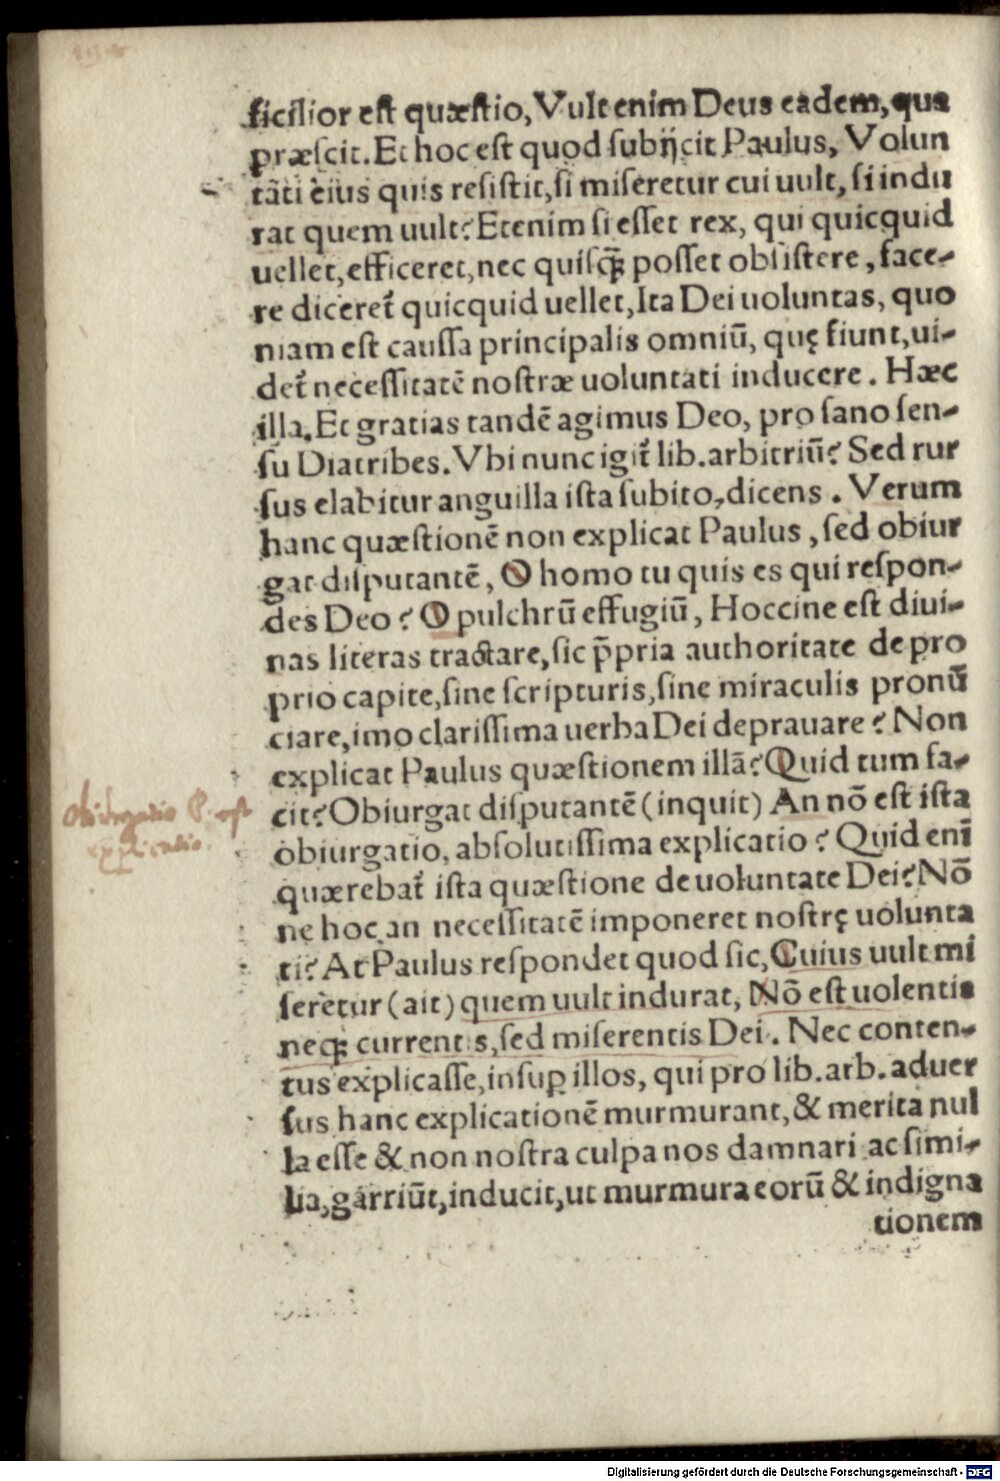 ficilior est quæstio, Vult enim Deus eadem, quæ
præscit. Et hoc est quod subijcit Paulus, Volun
tāti eius quis resistit, si miseretur cui uult, si indu
rat quem uult? Etenim si esset rex, qui quicquid
uellet, efficeret, nec quisq̃ posset obsistere, face-
re diceret᷑ quicquid uellet, Ita Dei uoluntas, quo
niam est caussa principalis omniũ, quę fiunt, ui-
det᷑ necessitatẽ nostræ uoluntati inducere. Hæc
illa. Et gratias tandẽ agimus Deo, pro sano sen-
su Diatribes. Vbi nunc igit᷑ lib. arbitriũ? Sed rur
sus elabitur anguilla ista subito, dicens. Verum
hanc quæstionẽ non explicat Paulus, sed obiur
gat disputantẽ, O homo tu quis es qui respon-
des Deo? O pulchrũ effugiũ, Hoccine est diui-
nas literas tractare, sic p̃pria authoritate de pro
prio capite, sine scripturis, sine miraculis pronũ
ciare, imo clarissima uerba Dei deprauare? Non
explicat Paulus quæstionem illã? Quid tum fa-
cit? Obiurgat disputantẽ (inquit) An nõ est ista
obiurgatio, absolutissima explicatio? Quid enĩ
quærebat᷑ ista quæstione de uoluntate Dei? Nõ
ne hoc an necessitatẽ imponeret nostrę uolunta
ti? At Paulus respondet quod sic, Cuius uult mi
seretur (ait) quem uult indurat, Nõ est uolentis
neqꝫ currentis, sed miserentis Dei. Nec conten-
tus explicasse, insuꝑ illos, qui pro lib. arb. aduer
sus hanc explicationẽ murmurant, & merita nul
la esse & non nostra culpa nos damnari ac simi-
lia, garriũt, inducit, ut murmura eorũ & indigna
tionem
explicatio.
Digitalisierung gefördert durch die Deutsche Forschungsgemeinschaft - DFG